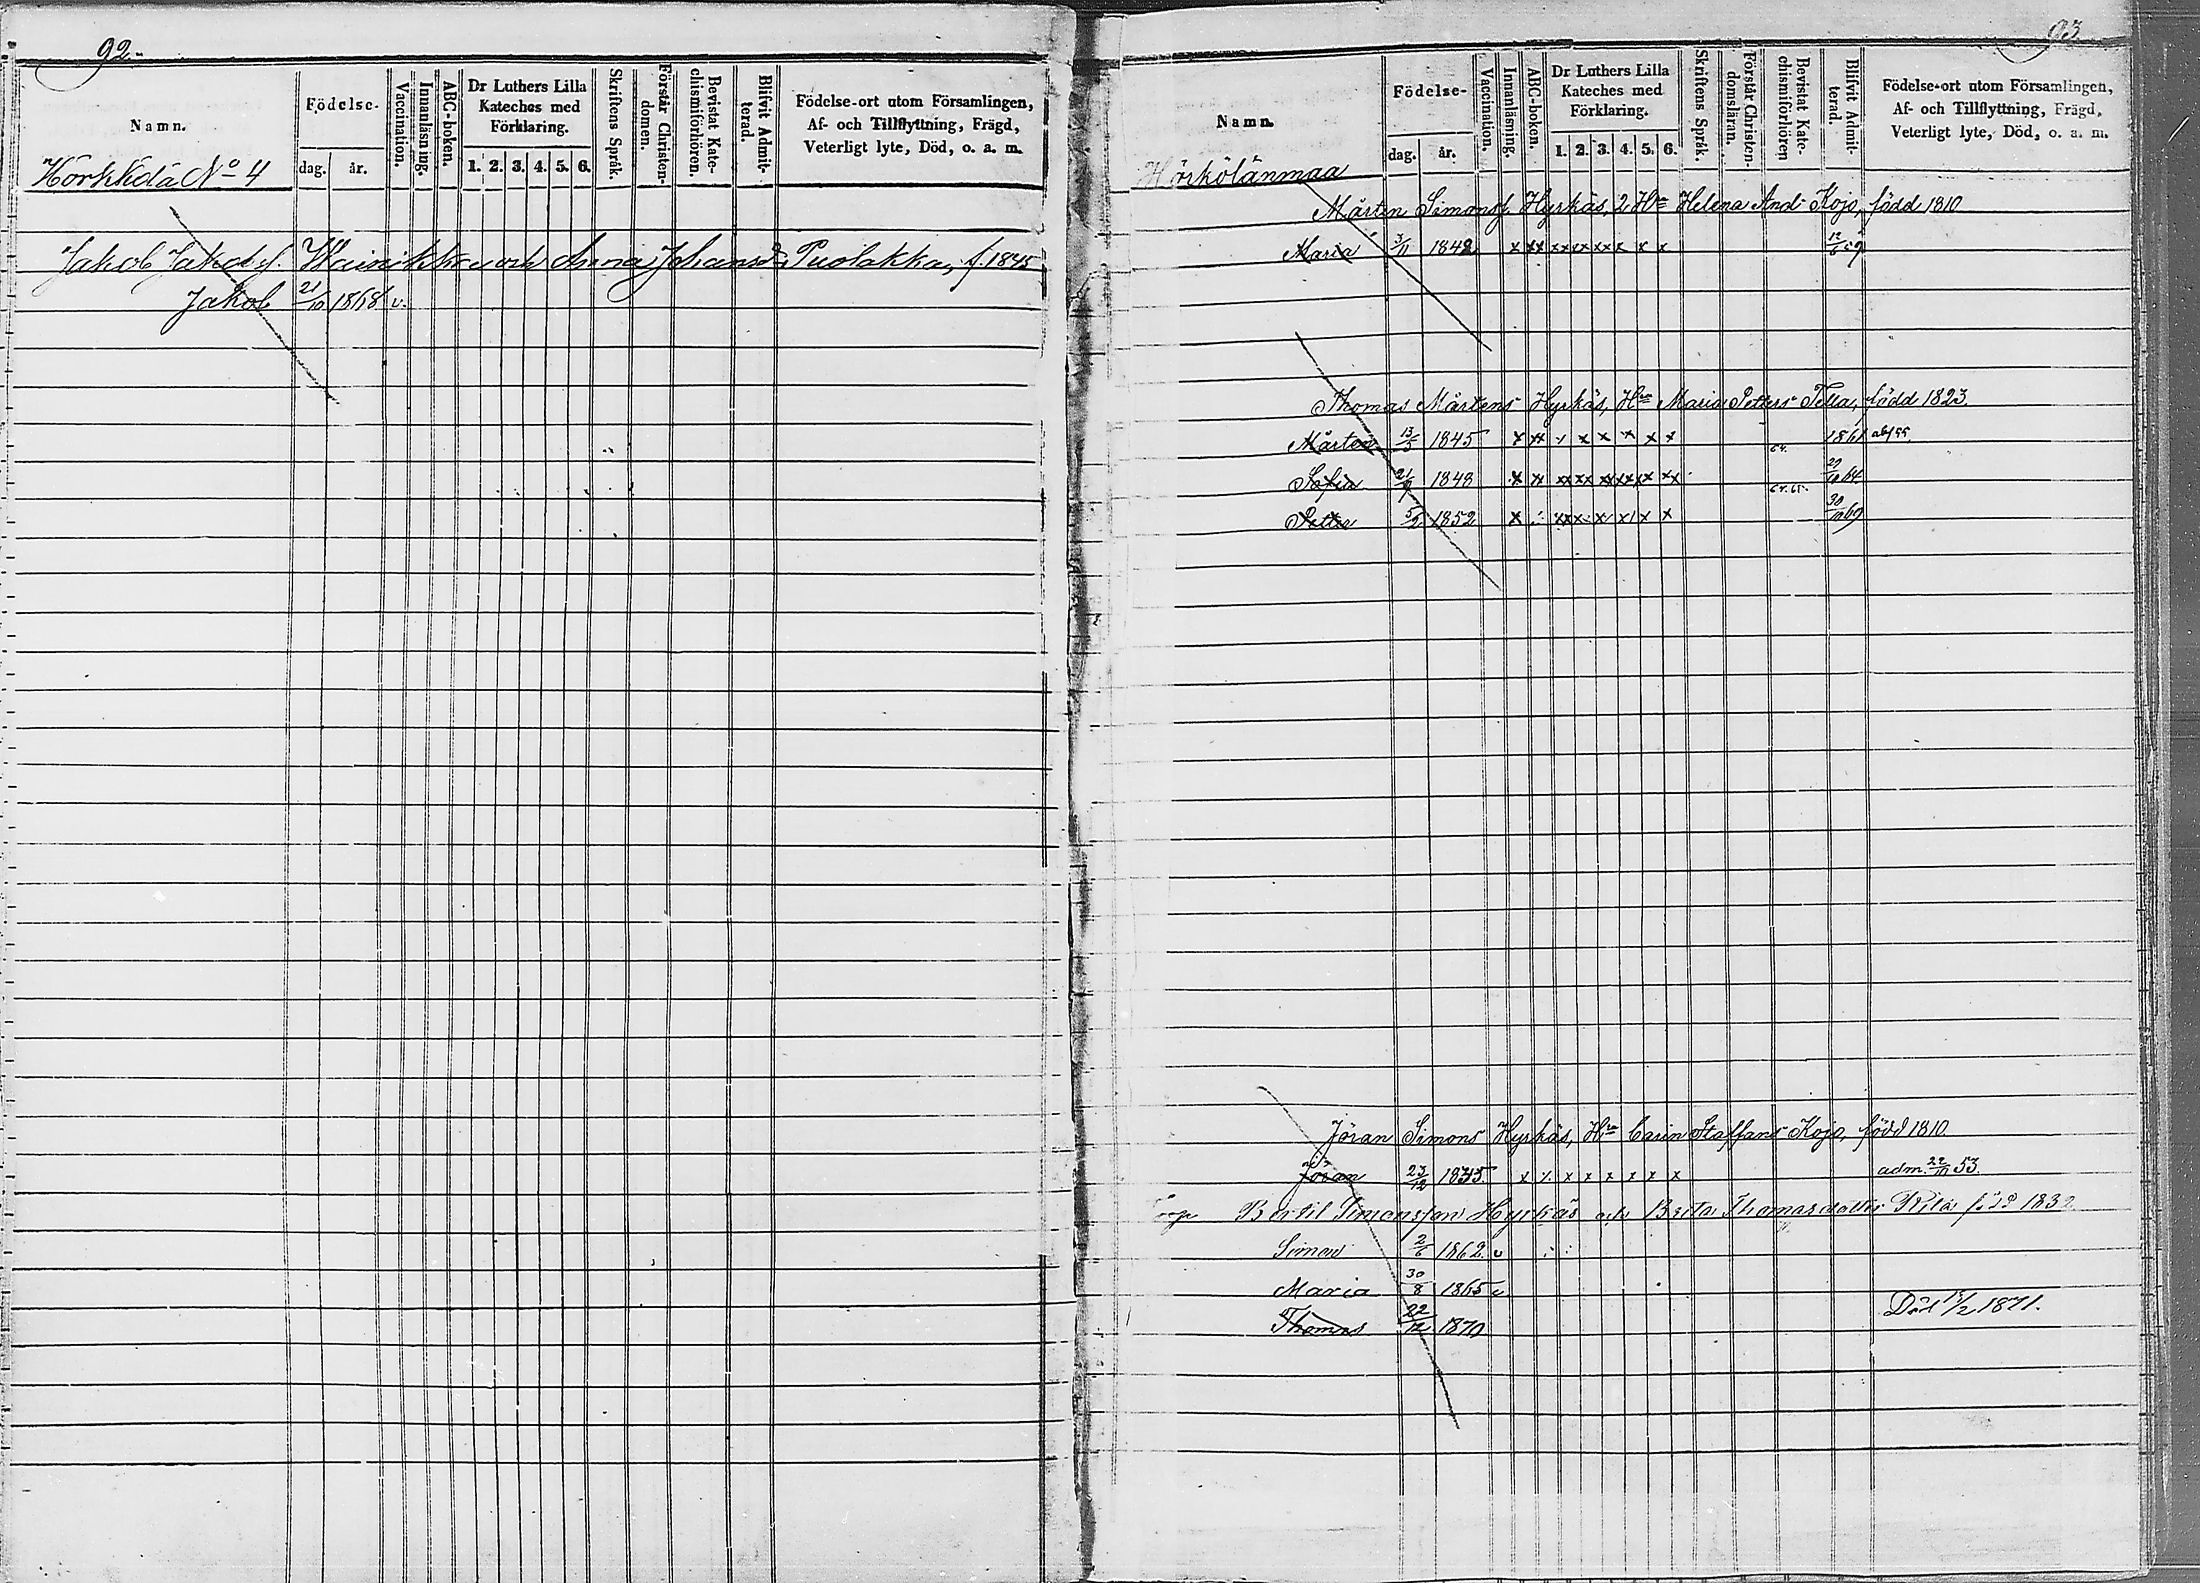 92.
Namn.
Födelse-
dag. år.
Vaccination.
Innanläsning.
ABC-boken.
Dr Luthers Lilla
Kateches med
Förklaring.
1. 2. 3. 4. 5. 6.
Skriftens Språk.
Förstår Christen-
domen.
Bevistat Kate-
chismiförhören.
Blifvit Admit-
terad.
Födelse-ort utom Församlingen,
Af- och Tillflyttning, Frägd,
Veterligt lyte, Död, o. a. m.
No 4
Jakob Jakobs. och Anna Johansd. Puolakka, f. 1845
Jakob 21/10 1868 v.
93
Namn.
Födelse-
dag. år.
Vaccination.
Innanläsning.
ABC-boken.
Dr Luthers Lilla
Kateches med
Förklaring.
1. 2. 3. 4. 5. 6.
Skriftens Språk.
Förstår Christen-
domsläran.
Bevistat Kate-
chismiförhören
Blifvit Admit-
terad
Födelse-ort utom Församlingen,
Af- och Tillflyttning, Frägd,
Veterligt lyte, Död, o. a. m.
Hörkölänmaa
Mårten Simonss. Hyrkäs, 2 Hu Helena And. Kojo, född 1810
Maria 3/11 1842 x xx xx xx xx x x x
Thomas Mårtens Hyrkäs, Hu Maria Petters Tella, född 1823.
Mårten 13/5 1845 x xx x x x x x x 64. 1861
Sofia 1848 x xx xx xx xx xx xx xx 64. 65. 64
Petter 5/2 1852 x xx x x x x x 30/10 69
Jöran Simons Hyrkäs, Hu Carin Staffans Kojo, född 1810
Jöran 23/12 1835. x x x x x x x x adm. 22/10 53.
Bertil Simonsson Hyrkäs och Brita Thomasdotter Pitä född 1832
Simon 2/6 1862 v
Maria 30/8 1865 v
Thomas 22/12 1870 Död 1871.